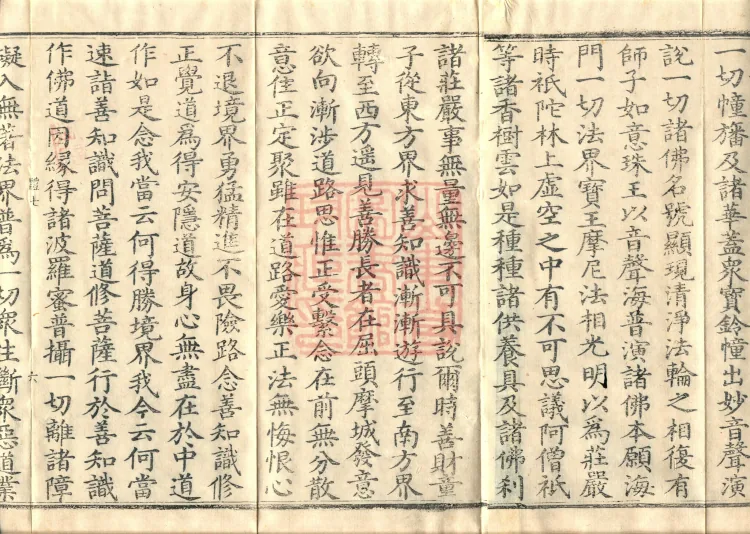 一切幢旛及諸華盖衆寳鈴幢出妙音聲演
說一切諸佛名號顯現清淨法輪之相復有
師子如意珠王以音聲海普演諸佛本願海
門一切法界寳王摩尼法相光明以爲莊嚴
時祇陀林上虛空之中有不可思議阿僧祇
等諸香樹雲如是種種諸供養具及諸佛刹
諸莊嚴事無量無邊不可具說爾時善財童
子從東方界求善知識漸漸遊行至南方界
轉至西方遥見善勝長者在屈頭摩城發意
欲向漸涉道路思惟正受繫念在前無分散
意住正定聚雖在道路愛樂正法無悔恨心
不退境界勇猛精進不畏險路念善知識修
正覺道爲得安隱道故身心無盡在於中道
作如是念我當云何得勝境界我今云何當
速詣善知識問菩薩道修菩薩行於善知識
作佛道因緣得諸波羅蜜普攝一切離諸障
體七
六
礙入無著法界普爲一切衆生斷衆惡道業